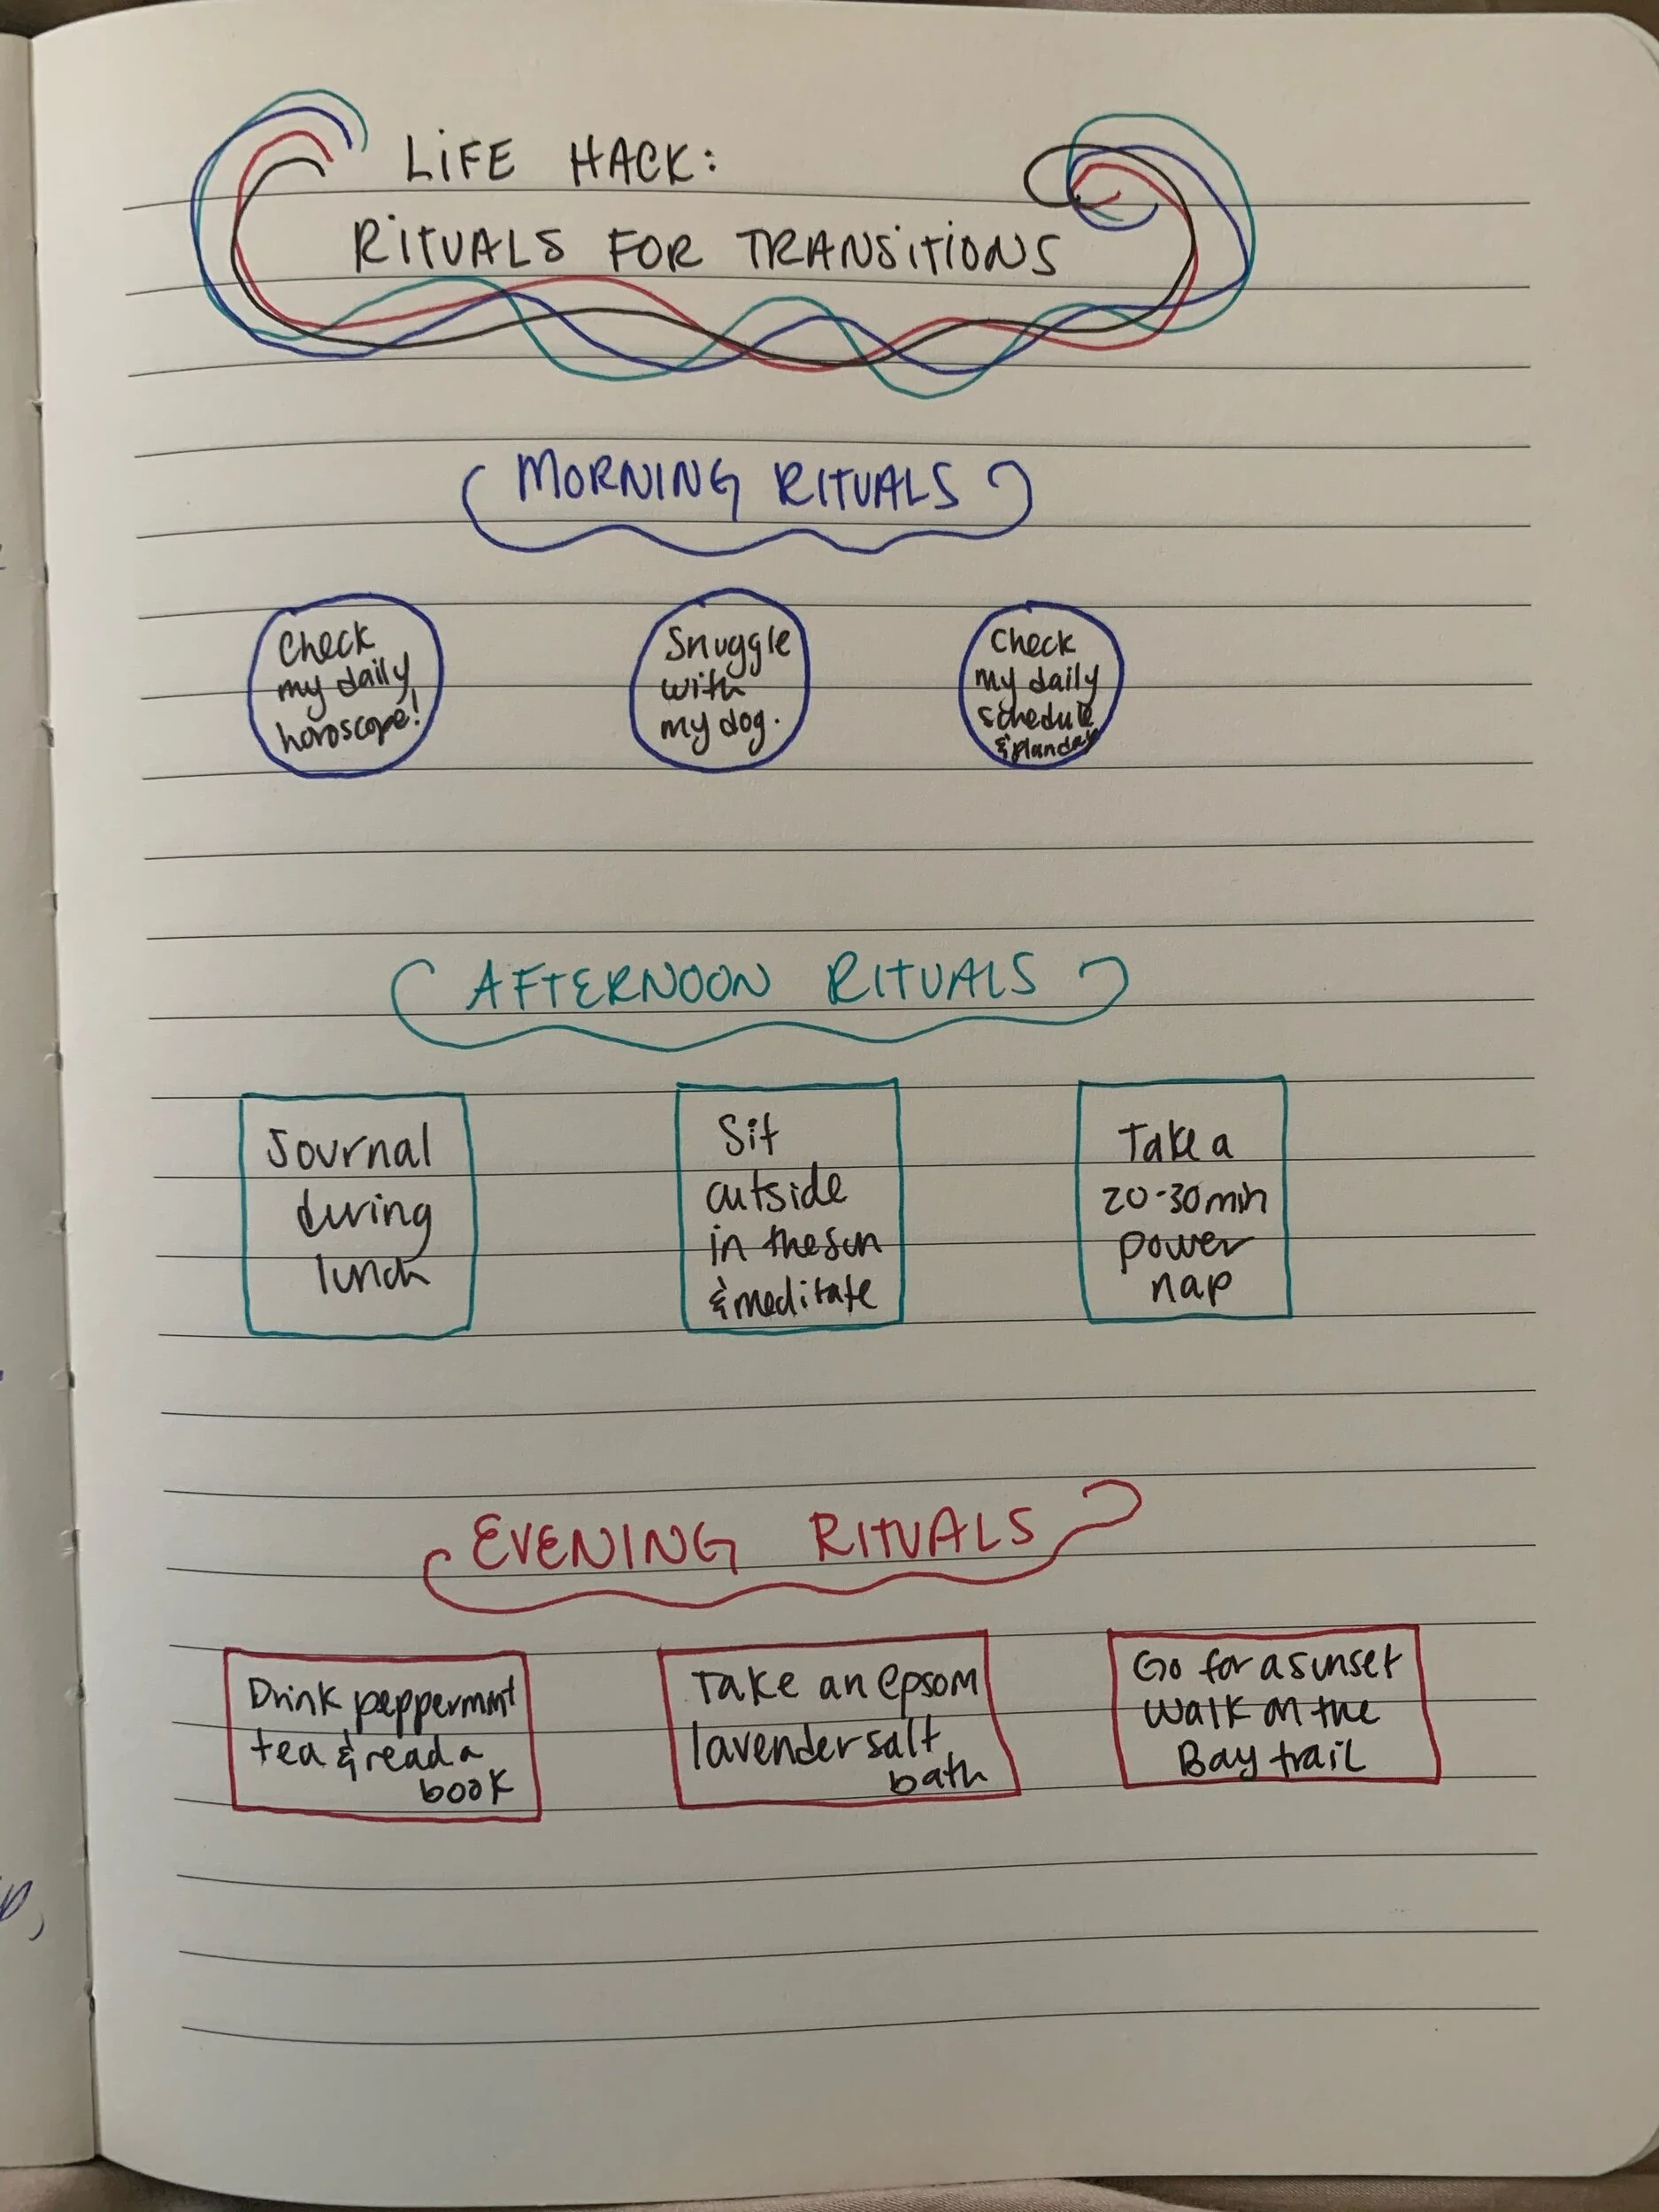 LiFE HACK:
RiTUALS FOR TRANSiTiONS
MORNING RITUALS
Check
my daily
horoscope!
Snuggle
with
my dog.
Check
my daily
schedule
& plan day
AFTERNOON RITUALS
Journal
during
lunch
Sit
outside
in the sun
& meditate
Take a
20-30 min
power
nap
EVENING RITUALS
Drink peppermint
tea & read a
book
Take an epsom
lavender salt
bath
Go for a sunset
walk on the
Bay trail